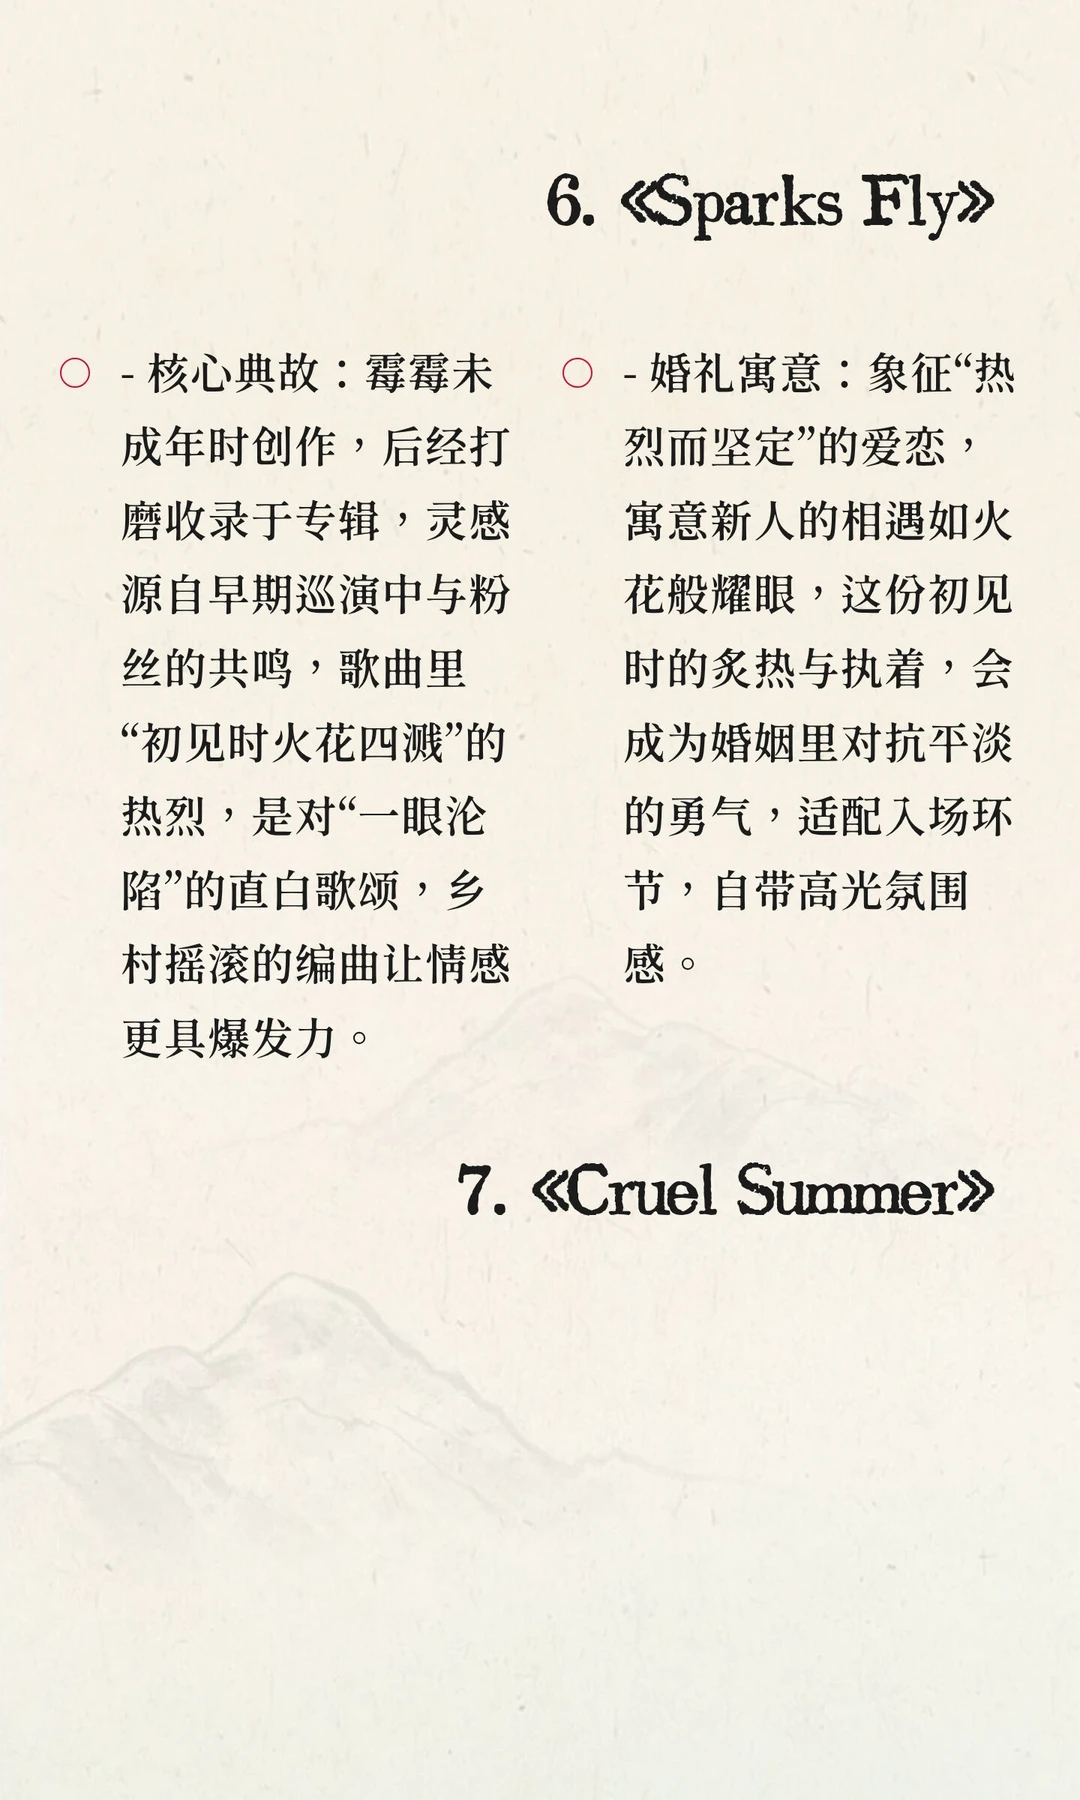 6. 《Sparks Fly》
- 核心典故：霉霉未
成年时创作，后经打
磨收录于专辑，灵感
源自早期巡演中与粉
丝的共鸣，歌曲里
“初见时火花四溅”的
热烈，是对“一眼沦
陷”的直白歌颂，乡
村摇滚的编曲让情感
更具爆发力。
- 婚礼寓意：象征“热
烈而坚定”的爱恋，
寓意新人的相遇如火
花般耀眼，这份初见
时的炙热与执着，会
成为婚姻里对抗平淡
的勇气，适配入场环
节，自带高光氛围
感。
7. 《Cruel Summer》